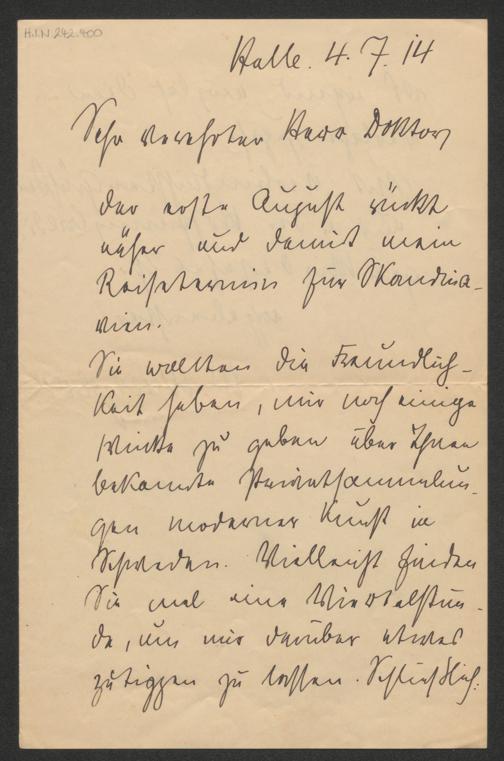 H.I.N. 242.400
Halle. 4. 7. 14
Sehr verehrter Herr Doktor,
der erste August rückt
näher und damit mein
Reisetermin für Skandina-
vien.
Sie wollten die Freundlich-
keit haben, mir noch einige
Winke zu geben über Ihnen
bekannte Privatsammlun-
gen moderner Kunst in
Schweden. Vielleicht finden
Sie mal eine Viertelstun-
de, um mir darüber etwas
zu lassen. Schließlich